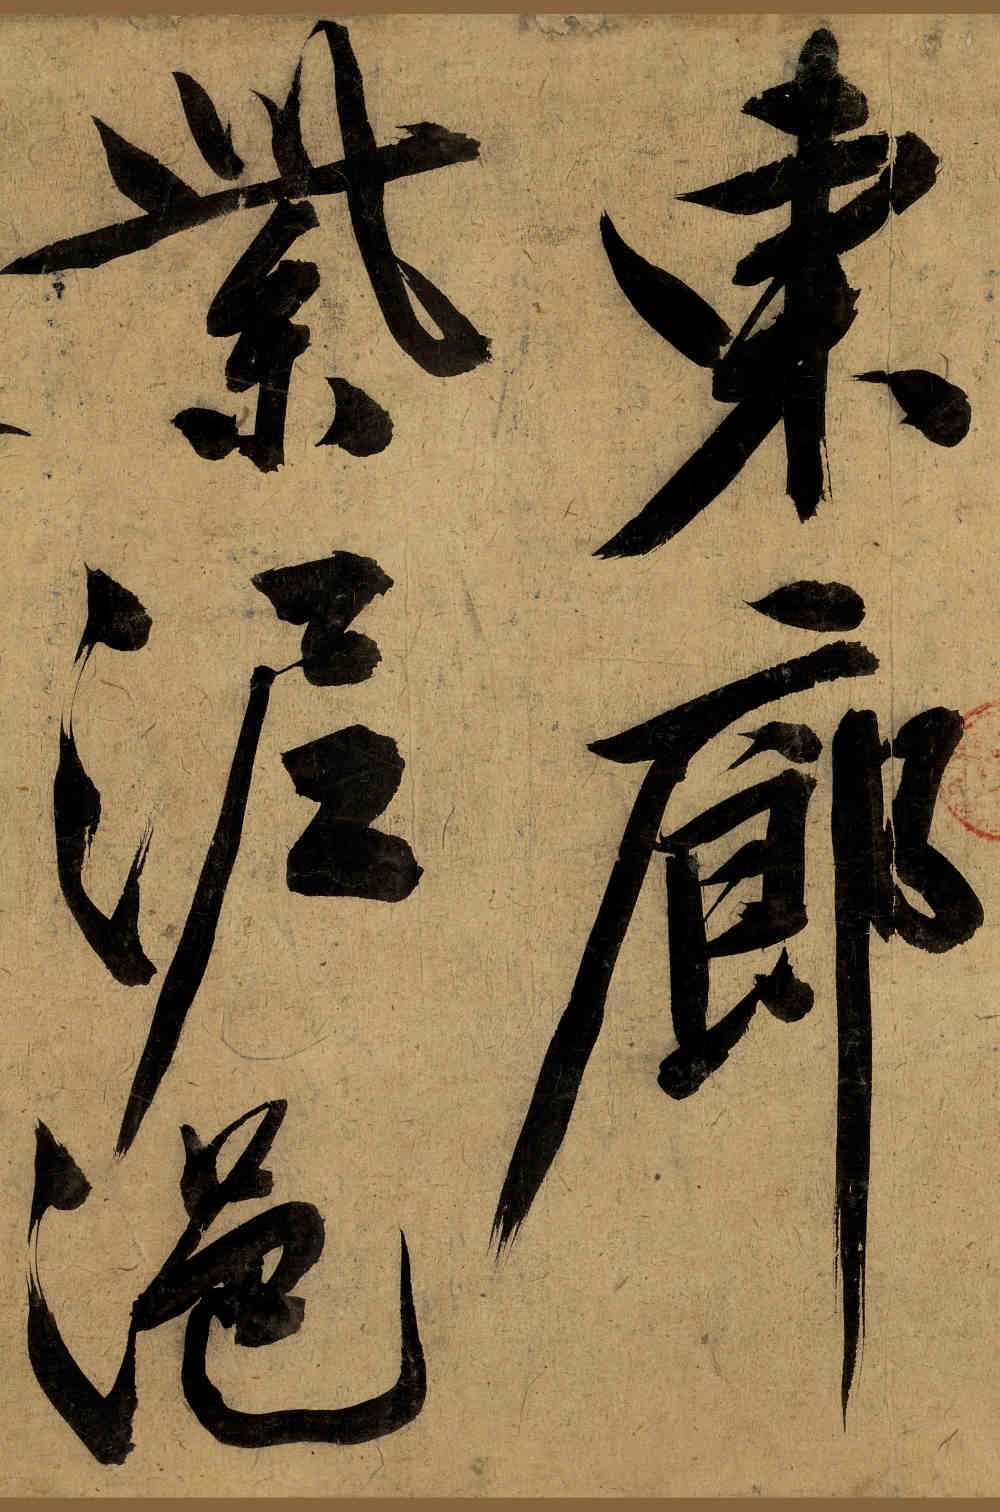 東廊
紫泥浥